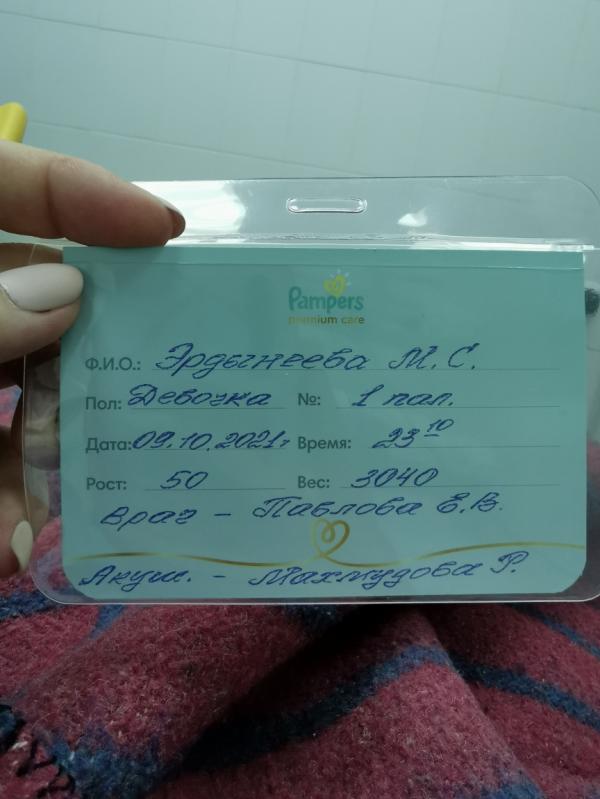 Pampers
premium care
Ф.И.О.: Эрдынеева М.С.
Пол: Девочка №: 1 пал.
Дата: 09.10.2021г Время: 23 10
Рост: 50 Вес: 3040
Врач - Павлова Е.В.
Акуш. - Махмудова Р.